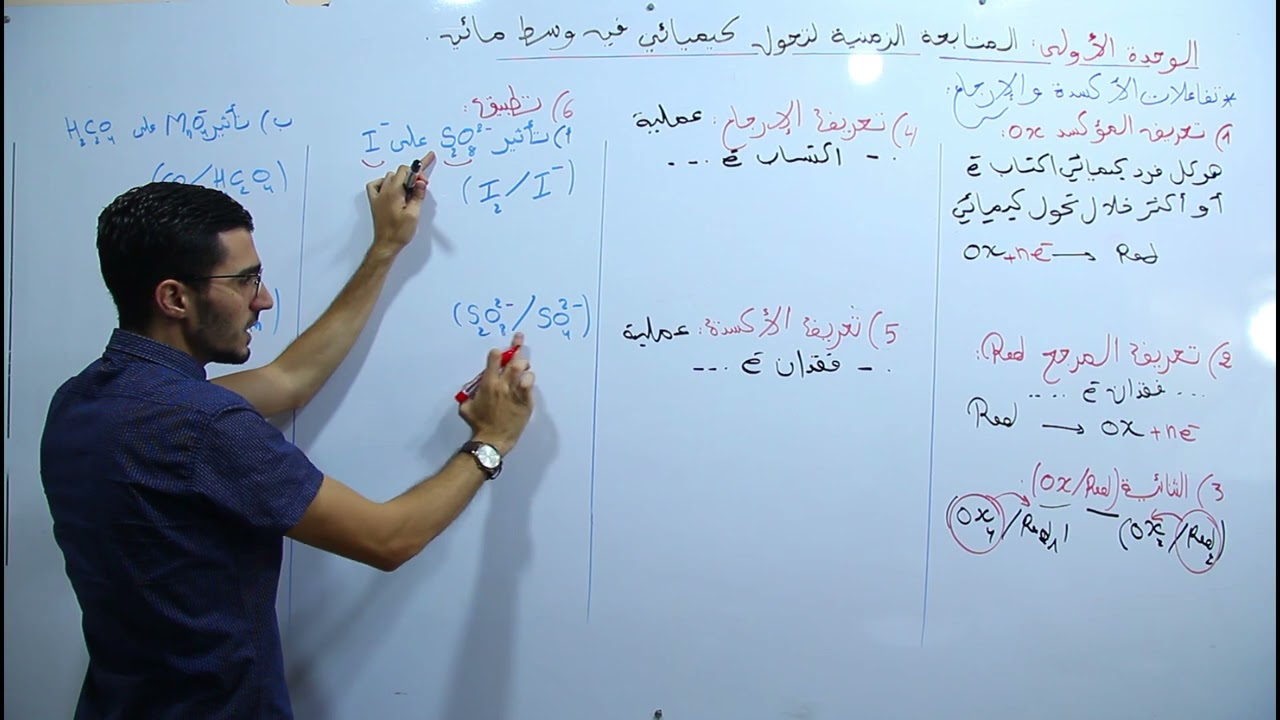 الوحدة الأولى: المتابعة الزمنية لتحول كيميائي في وسط مائي.
* تفاعلات الأكسدة والإرجاع:
1) تعريف المؤكسد Ox:
هو كل فرد كيميائي اكتساب é
أو أكثر خلال تحول كيميائي
Ox + né → Red
2) تعريف المرجع Red:
... فقدان é ....
Red → Ox + né
3) الثنائية (Ox/Red):
Ox₁/Red₁) (Ox₂/Red₂)
4) تعريف الإرجاع: عملية
. - اكتساب é ...
5) تعريف الأكسدة: عملية
. - فقدان é ...
6) تطبيق:
أ) تأثير S₂O₈²⁻ على I⁻
(I₂/I⁻)
(S₂O₈²⁻/SO₄²⁻)
ب) تأثير MnO₄⁻ على H₂C₂O₄
/H₂C₂O₄)